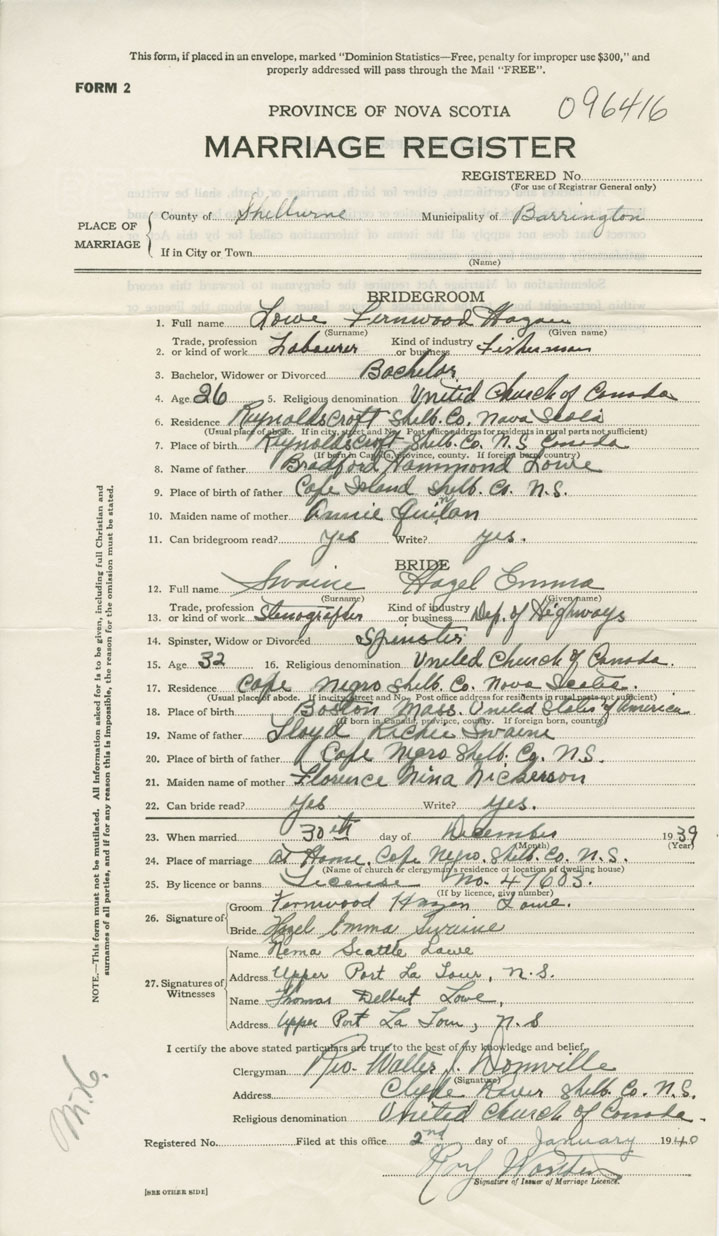 This form, if placed in an envelope, marked "Dominion Statistics—Free, penalty for improper use $300," and
properly addressed will pass through the Mail "FREE".
FORM 2
PROVINCE OF NOVA SCOTIA 096416
MARRIAGE REGISTER
REGISTERED No.
(For use of Registrar General only)
PLACE OF MARRIAGE
County of Shelburne Municipality of Barrington
If in City or Town
(Name)
BRIDEGROOM
1. Full name Lowe Fernwood Hazen
(Surname) (Given name)
2. Trade, profession or kind of work Labourer Kind of industry or business Fisherman
3. Bachelor, Widower or Divorced Bachelor
4. Age 26 5. Religious denomination United Church of Canada
6. Residence Reynoldscroft Shelb. Co. Nova Scotia
(Usual place of abode. If in city, street and No. Post office address for residents in rural parts not sufficient)
7. Place of birth Reynoldscroft Shelb. Co. N.S. Canada
(If born in Canada, province, county. If foreign born, country)
8. Name of father Bradford Hammond Lowe
9. Place of birth of father Cape Island Shelb. Co. N.S.
10. Maiden name of mother Annie Quinlan
11. Can bridegroom read? yes Write? yes.
BRIDE
12. Full name Swaine Hazel Emma
(Surname) (Given name)
13. Trade, profession or kind of work Stenographer Kind of industry or business Dep. of Highways
14. Spinster, Widow or Divorced Spinster
15. Age 32 16. Religious denomination United Church of Canada.
17. Residence Cape Negro Shelb. Co. Nova Scotia.
(Usual place of abode. If in city, street and No. Post office address for residents in rural parts not sufficient)
18. Place of birth Boston Mass. United States of America
(If born in Canada, province, county. If foreign born, country)
19. Name of father Lloyd Richie Swaine
20. Place of birth of father Cape Negro Shelb. Co. N.S.
21. Maiden name of mother Florence Nina Nickerson
22. Can bride read? yes Write? yes.
23. When married 30th day of December 1939
(Month) (Year)
24. Place of marriage At Home, Cape Negro. Shelb. Co. N.S.
(Name of church or clergyman's residence or location of dwelling house)
25. By licence or banns License No. 47603.
(If by licence, give number)
26. Signature of
Groom Fernwood Hazen Lowe.
Bride Hazel Emma Swaine
27. Signatures of Witnesses
Name Nema Seattle Lowe
Address Upper Port La Tour, N.S.
Name Thomas Delbert Lowe,
Address Upper Port La Tour, N.S
I certify the above stated particulars are true to the best of my knowledge and belief.
Clergyman Rev. Walter J. Domville
(Signature)
Address Clyde River Shelb. Co. N.S.
Religious denomination United Church of Canada.
Registered No. Filed at this office 2nd day of January 1940
Roy
Signature of Issuer of Marriage Licence.
[SEE OTHER SIDE]
NOTE.—This form must not be mutilated. All information asked for is to be given, including full Christian and
surnames of all parties, and if for any reason this is impossible, the reason for the omission must be stated.